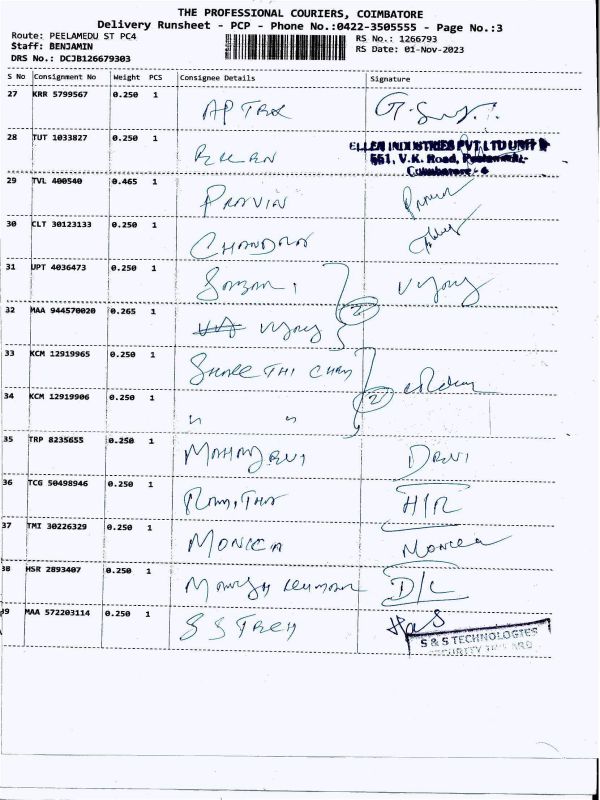 THE PROFESSIONAL COURIERS, COIMBATORE
Delivery Runsheet - PCP - Phone No.:0422-3505555 - Page No.:3
Route: PEELAMEDU ST PC4
RS No.: 1266793
Staff: BENJAMIN
RS Date: 01-Nov-2023
DRS No.: DCJB126679303
S No Consignment No Weight PCS Consignee Details Signature
27 KRR 5799567 0.250 1
28 TUT 1033827 0.250 1
ELLEN INDUSTRIES PVT LTD UNIT
551, V.K. Road, Peelamedu,
Coimbatore - 4
29 TVL 400540 0.465 1 PRAVIN Pravin
30 CLT 30123133 0.250 1
31 UPT 4036473 0.250 1 Vijay
32 MAA 944570020 0.265 1 Vijay 2
33 KCM 12919965 0.250 1
34 KCM 12919906 0.250 1 " " 2
35 TRP 8235655 0.250 1 MAHADEVI DEVI
36 TCG 50498946 0.250 1 H/R
37 TMI 30226329 0.250 1 MONICA Monica
38 HSR 2893407 0.250 1 D/L
39 MAA 572203114 0.250 1 S S TECH
S & S TECHNOLOGIES